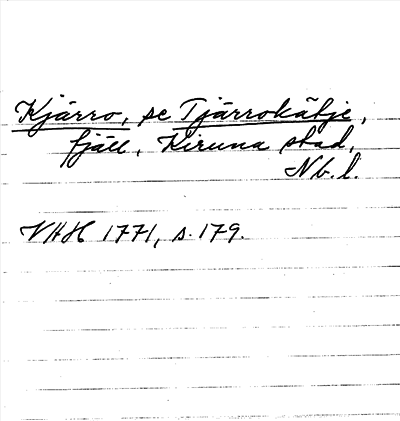 Kjårro, se Tjårrokåtje,
fjäll, Kiruna stad,
Nb. l.
VHH 1771, s. 179.